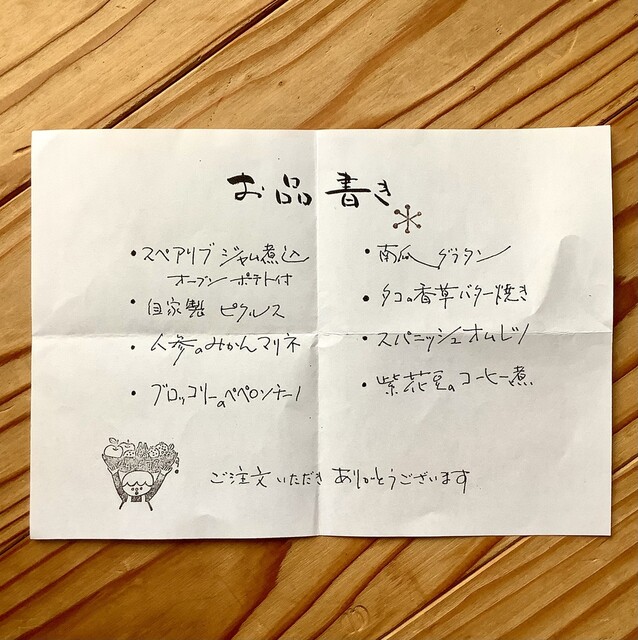 お品書き
・スペアリブ ジャム煮込
オーブンポテト付
・自家製 ピクルス
・人参のみかんマリネ
・ブロッコリーのペペロンチーノ
・南瓜グラタン
・タコの香草バター焼き
・スパニッシュオムレツ
・紫花豆のコーヒー煮
ご注文いただき ありがとうございます